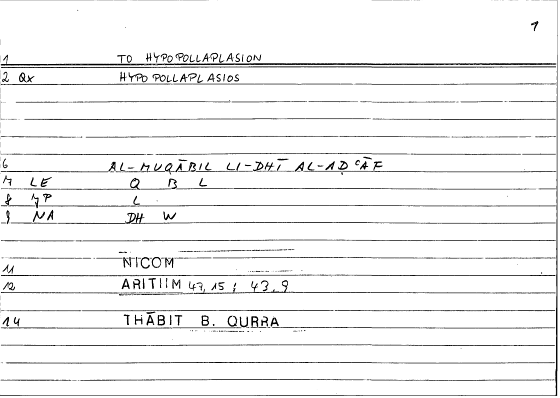 1
1 TO HYPOPOLLAPLASION
2 Qx HYPOPOLLAPLASIOS
6 AL-MUQĀBIL LI-DHĪ AL-AḌʿĀF
7 LE Q B L
8 YP L
9 NA DH W
11 NICOM
12 ARITIIM 47,15; 43,9
14 THĀBIT B. QURRA